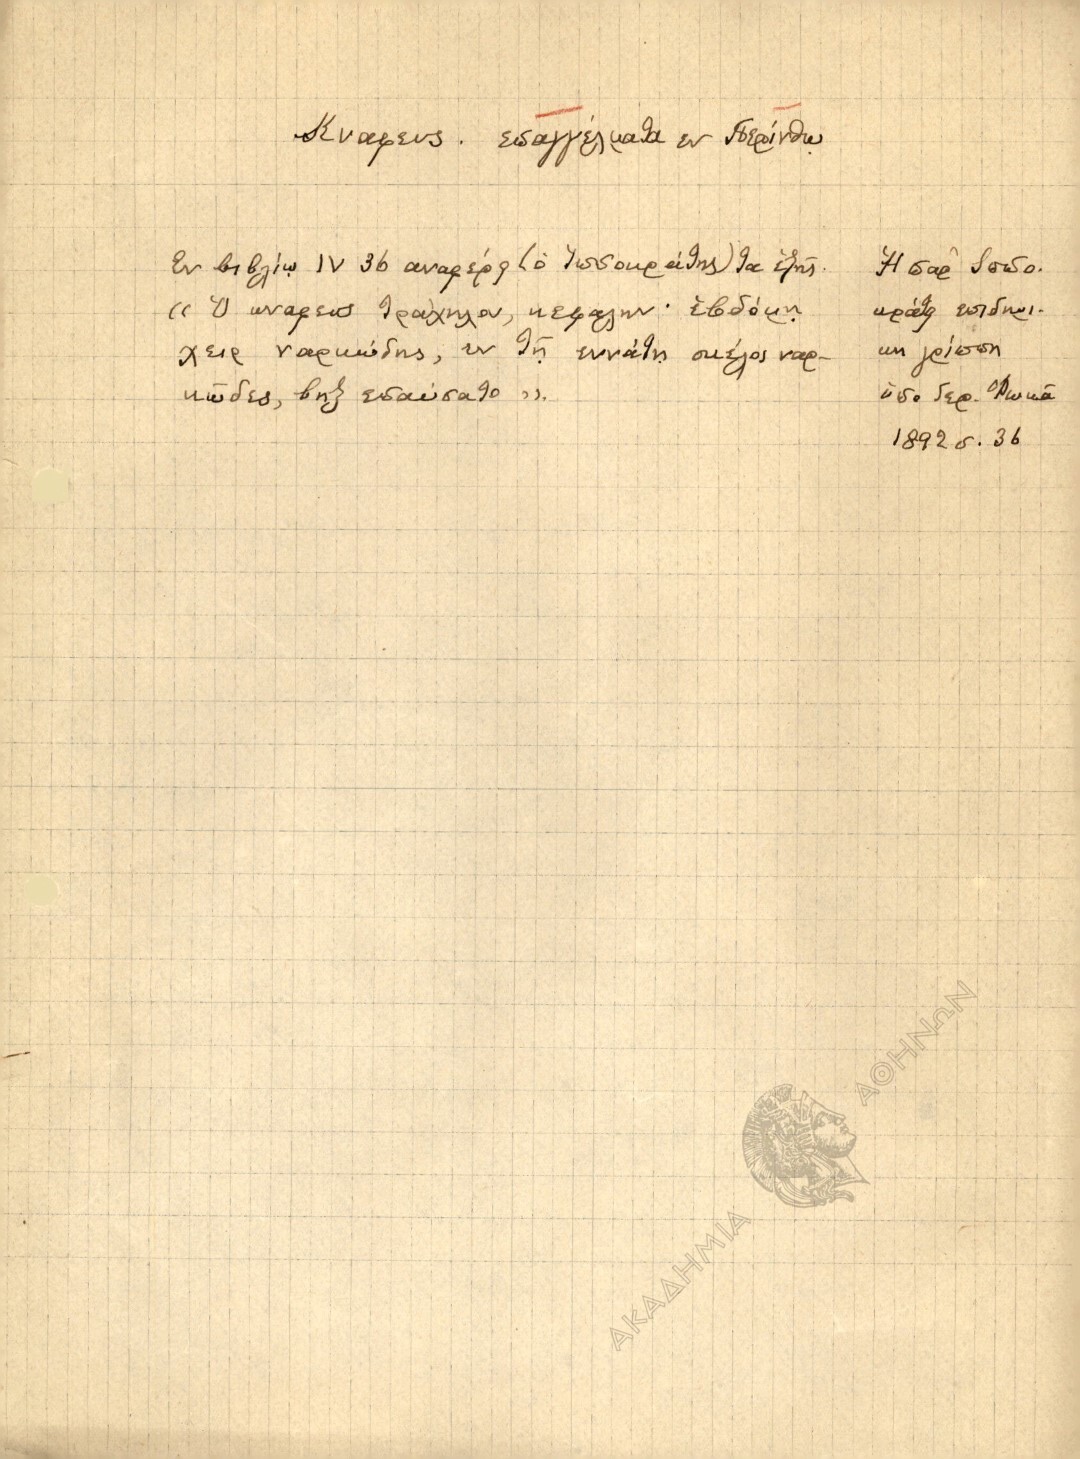 Κναφευς. επαγγέλματα εν Περίνθῳ
Εν βιβλίῳ IV 36 αναφέρει (ὁ Ἱπποκράτης) τα ἑξῆς.
« Ὁ κναφευς τράχηλον, κεφαλην· ἑβδόμῃ
χειρ ναρκώδης, εν τῇ εννάτῃ σκέλος ναρ-
κῶδες, βηξ επαύσατο ».
Ἡ παρ' Ιππο-
κράτει επιδημι-
κη γρίππη
ὑπο Γερ. Φωκᾶ
1892 σ. 36
ΑΚΑΔΗΜΙΑ ΑΘΗΝΩΝ